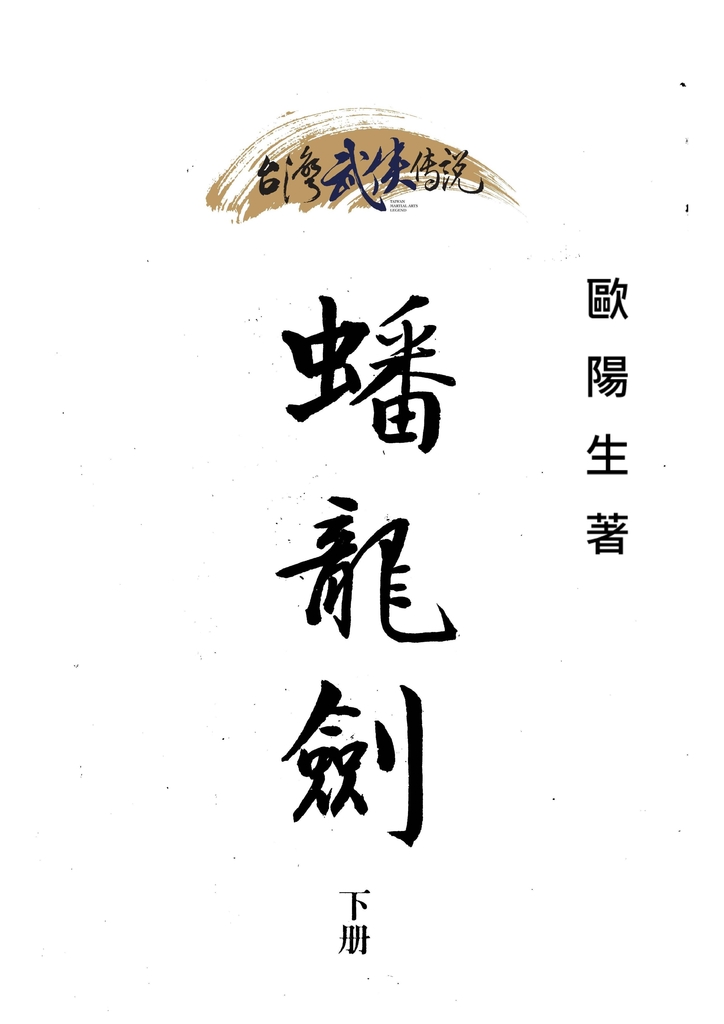 台灣武俠传说
TAIWAN
MARTIAL ARTS
LEGEND
歐陽生著
蟠龍劍
下册